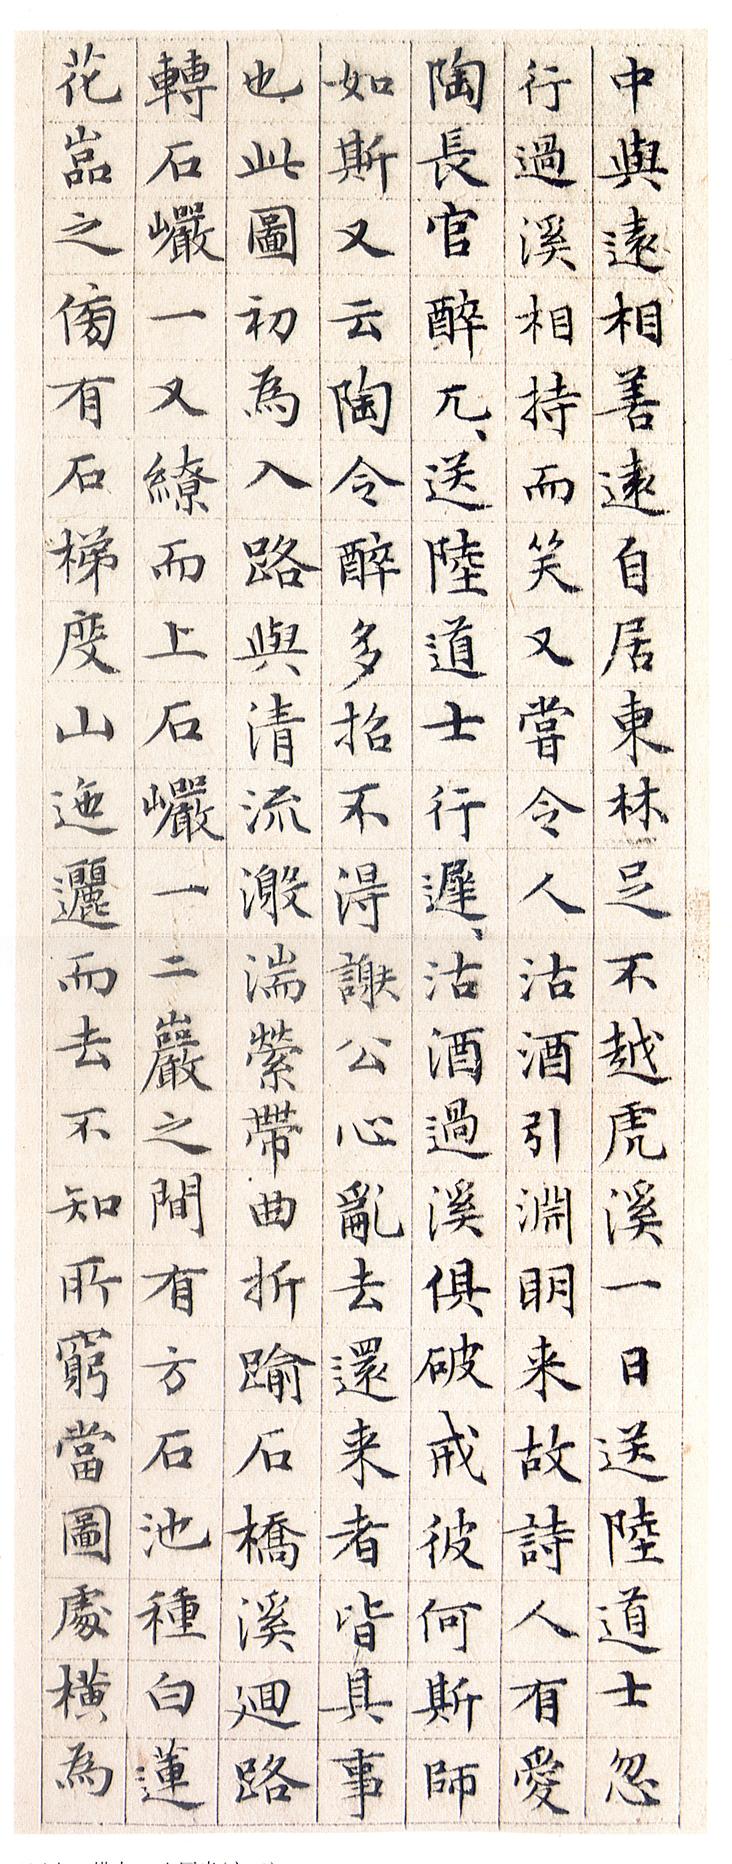 中與遠相善遠自居東林足不越虎溪一日送陸道士忽
行過溪相持而笑又嘗令人沽酒引淵明来故詩人有愛
陶長官醉兀〻送陸道士行遲〻沽酒過溪俱破戒彼何斯師
如斯又云陶令醉多招不得謝公心亂去還来者皆具事
也此圖初為入路與清流激湍縈帶曲折踰石橋溪迴路
轉石巗一又繚而上石巗一二巖之間有方石池種白蓮
花嵓之傍有石梯度山迤邐而去不知所窮當圖處橫為